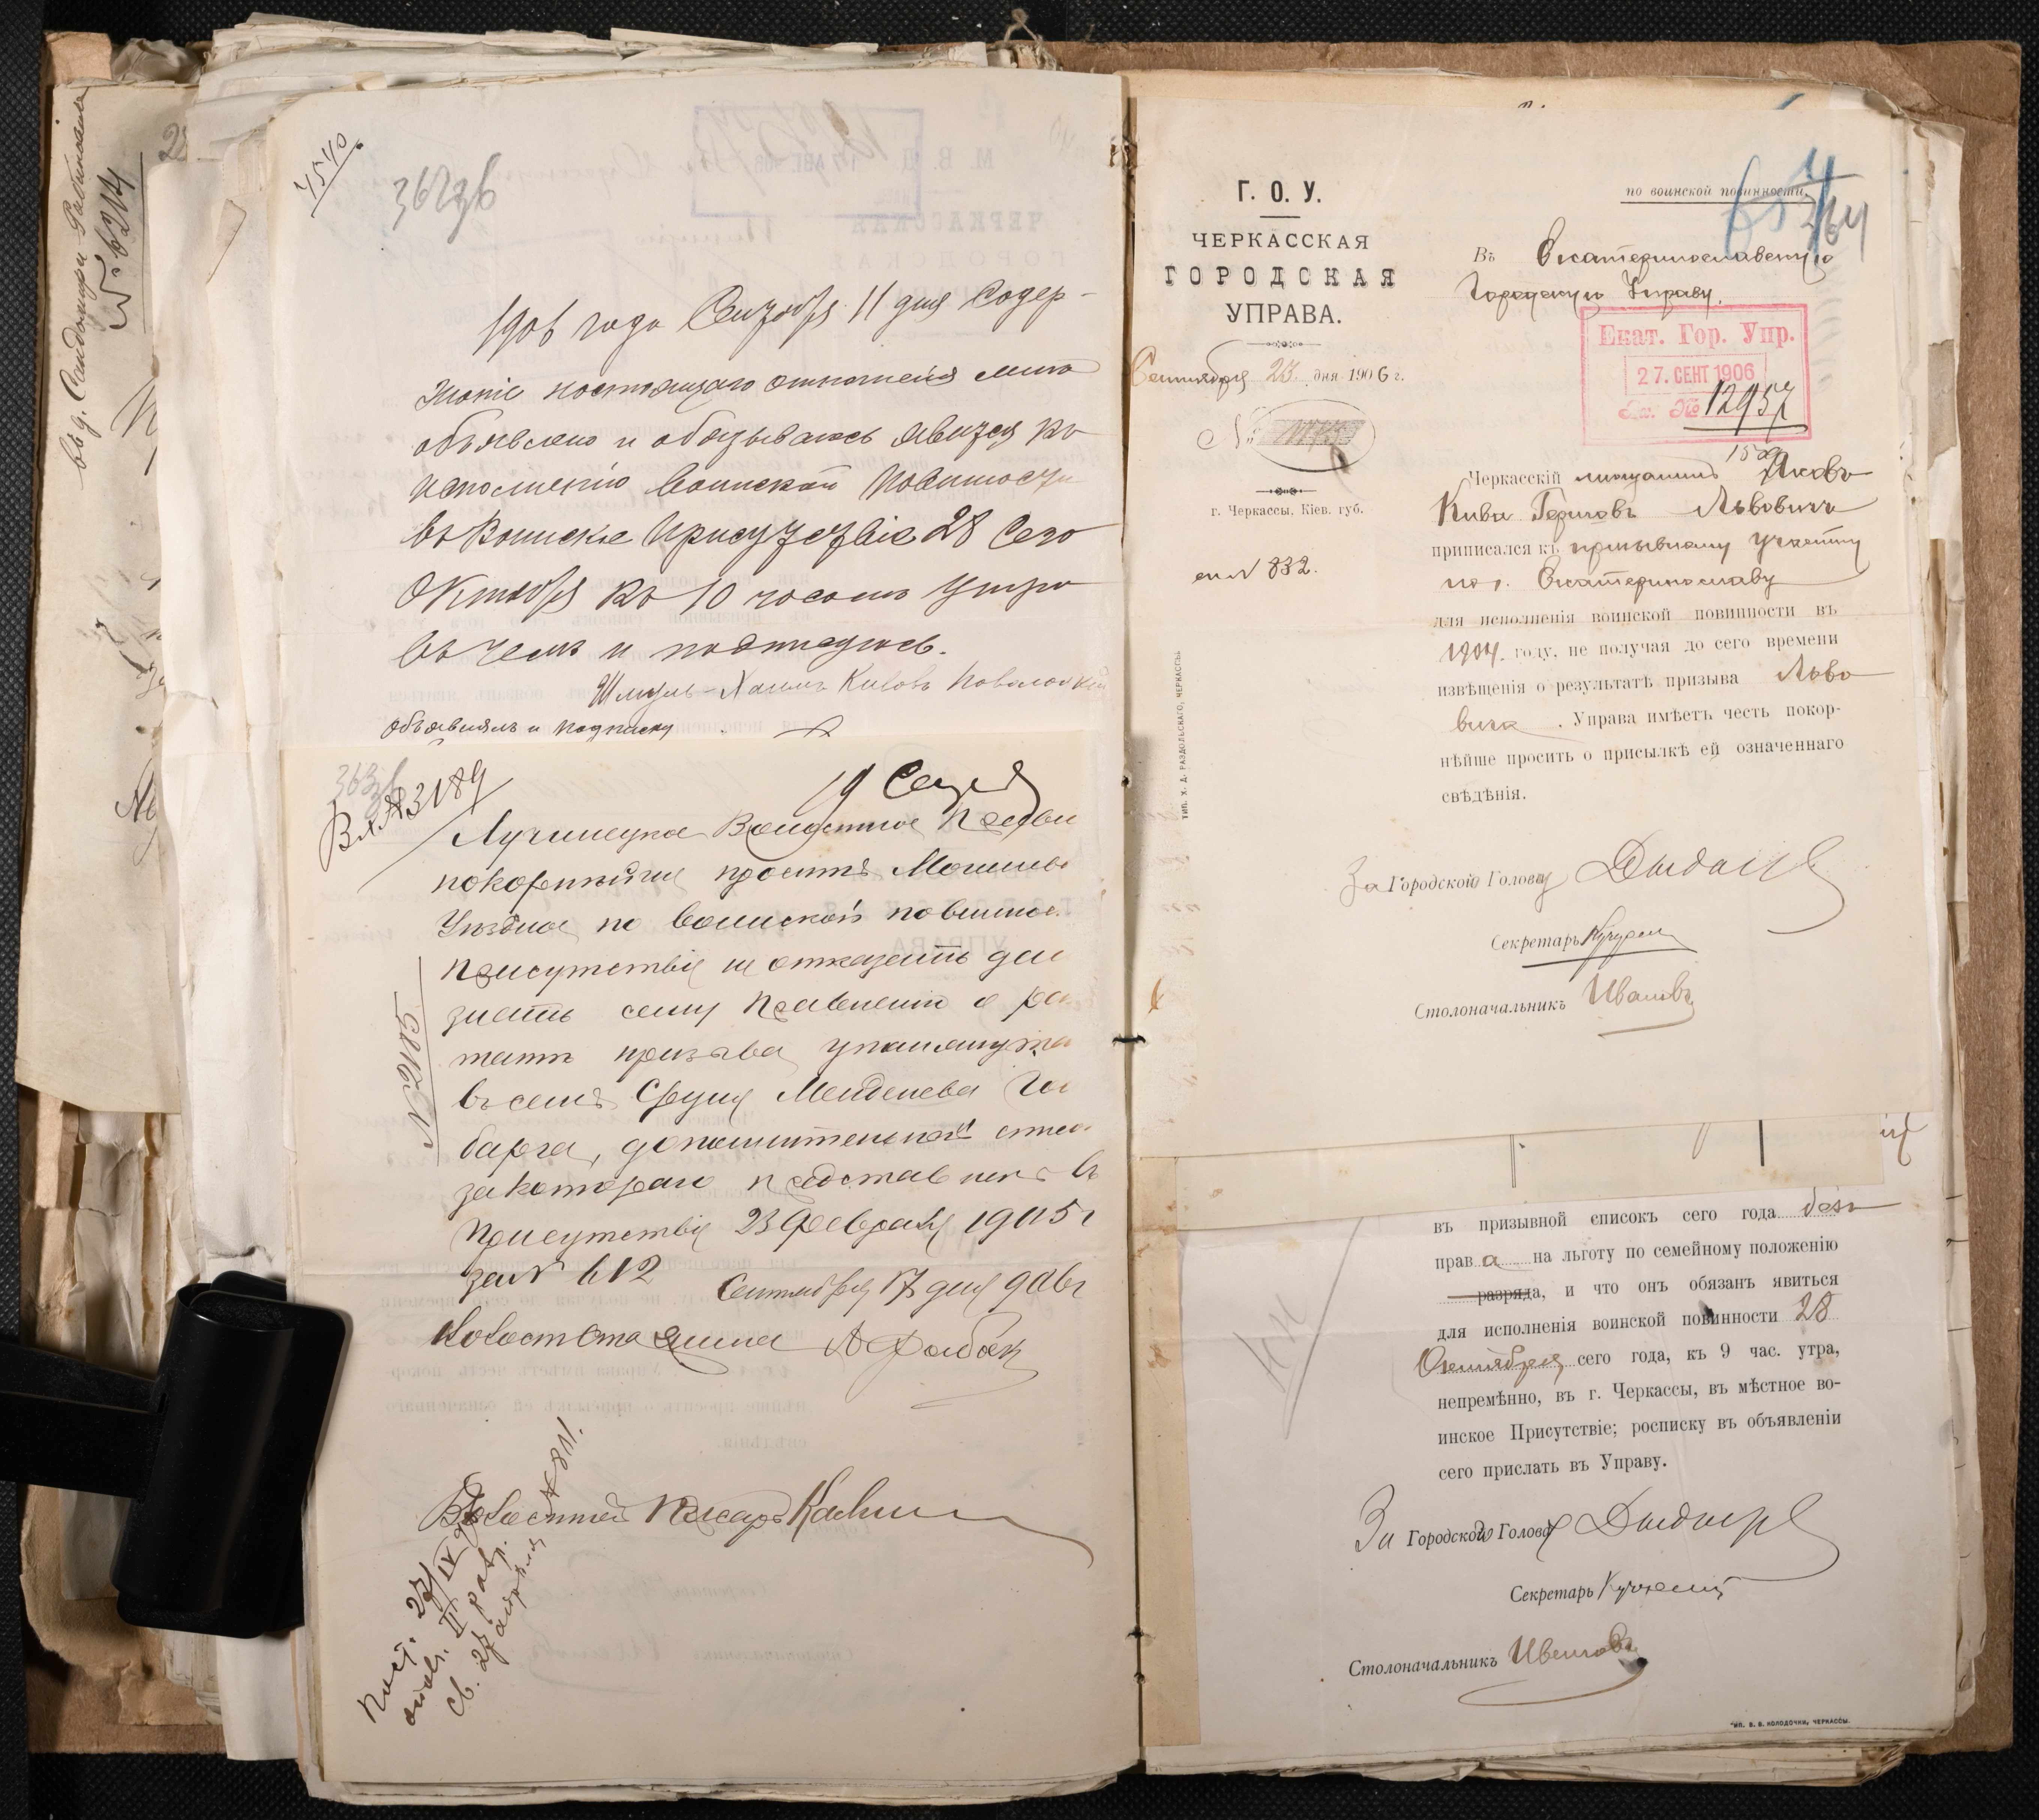 въ д. Сандомири-Работмала
№ 6214
7540
362 зв
1906 года Сентября 11 дня Содер-
жаніе настоящаго отношенія мнѣ
объявлено и обязываюсь явится къ
исполненію воинской повинности
въ Воинское Присутствіе 28 Сего
Октября къ 10 часамъ утра
въ чемъ и подписуюсь.
Шмуль-Хаимъ Кивовъ Поволоцкій
Объявилъ и подписку
363 зв
Вх № 3189
19 Сент
Лучинецкое Волостное Правл
покорнѣйше проситъ Могилев
Уѣздное по воинской повиннос
Присутствіе не отказать дат
знать сему Правленію о рез
татѣ призыва упомянута
въ семъ Сруля Менделева
барга, дополнительный спис
за котораго представленъ въ
Присутствіе 23 Февраля 1905 г
за № 612
Сентября 17 дня 906 г
Волост Старшина
Волостной Писарь
№ 811.
св. 27 апрѣля
Г. О. У.
ЧЕРКАССКАЯ
ГОРОДСКАЯ
УПРАВА.
Сентября 23 дня 1906 г.
№
г. Черкассы, Кіев. губ.
ст № 832.
ТИП. Х. Д. РАЗДОЛЬСКАГО, ЧЕРКАССЫ.
по воинской повинности.
654
264
Въ Екатеринославскую
Городскую Управу.
Екат. Гор. Упр.
27. СЕНТ 1906
Вх. № 12957
Черкасскій мѣщанинъ Яковъ
Кива Гершовъ Львовичъ
приписался къ призывному участку
по г. Екатеринославу
для исполненія воинской повинности въ
1904. году, не получая до сего времени
извѣщенія о результатѣ призыва Льво
вича. Управа имѣетъ честь покор-
нѣйше просить о присылкѣ ей означеннаго
свѣдѣнія.
За Городского Голову
Секретарь
Столоначальникъ Ивановъ
въ призывной списокъ сего года безъ
права на льготу по семейному положенію
разряда, и что онъ обязанъ явиться
для исполненія воинской повинности 28
Октября сего года, къ 9 час. утра,
непремѣнно, въ г. Черкассы, въ мѣстное во-
инское Присутствіе; росписку въ объявленіи
сего прислать въ Управу.
За Городского Голову
Секретарь
Столоначальникъ Ивановъ
ТИП. В. В. КОЛОДОЧКИ, ЧЕРКАССЫ.